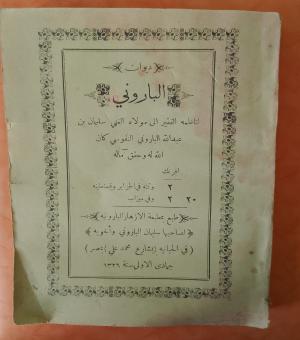 ديوان
الباروني
لناظمه الفقير الى مولاه الغني سليمان بن
عبدالله الباروني النفوسي كان
الله له وحقق مآله
فرنك
٢ وكذا في الجزائر وقسنطينة
٢٠ ٢ وفي ميزاب
طبع بمطبعة الازهار البارونية
لصاحبها سليمان الباروني واخويه
( في الحبانيه بشارع محمد علي بمصر )
جمادى الاولى سنة ١٣٢٦